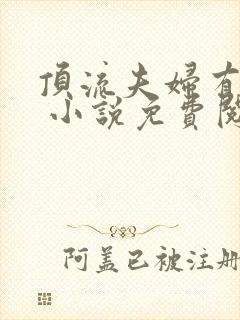 頂流夫婦有
小說免費閱
阿蓋已被注册